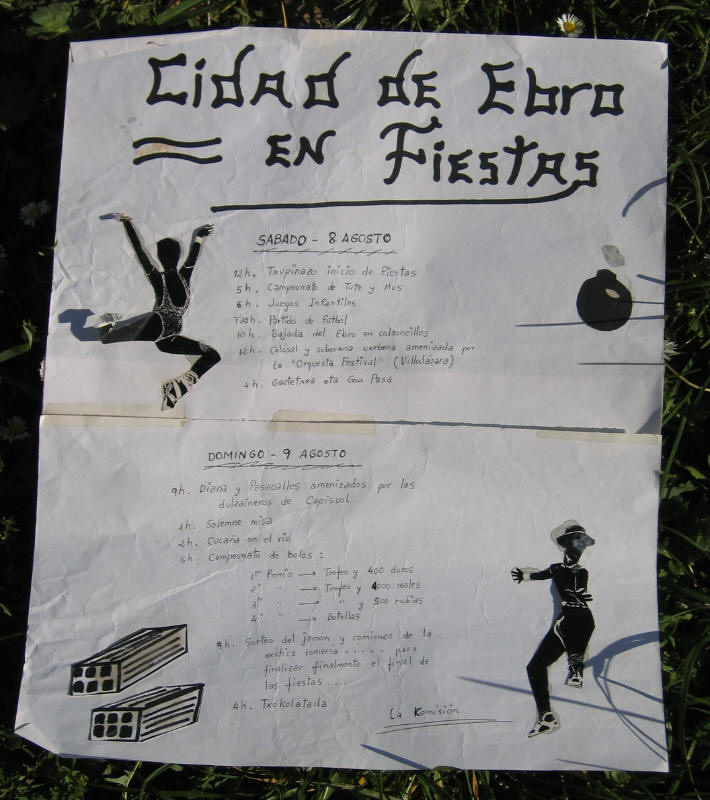 Cidad de Ebro
EN FIESTAS
SABADO - 8 AGOSTO
12h. Txupinazo inicio de Fiestas
5h. Campeonato de Tute y Mus
6h. Juegos Infantiles
7'30h. Partido de futbol
10h. Bajada del Ebro en calzoncillos
12h. Colosal y soberana verbena amenizada por
La "Orquesta Festival" (Villalazara)
4h. Gaztetxea eta Gau Pasa
DOMINGO - 9 AGOSTO
9h. Diana y Pasacalles amenizados por los
dulzaineros de Capiscol.
1h. Solemne misa
2h. Cucaña en el río
5h. Campeonato de bolos :
1er Premio → Trofeo y 400 duros
2º " → Trofeo y 1000 reales
3er " → " y 500 rubias
4º " → Botellas
9h. Sorteo del jamón y comienzo de la
exótica romería ..... para
finalizar finalmente el final de
las fiestas ...
4h. Txokolatada
La Komisión